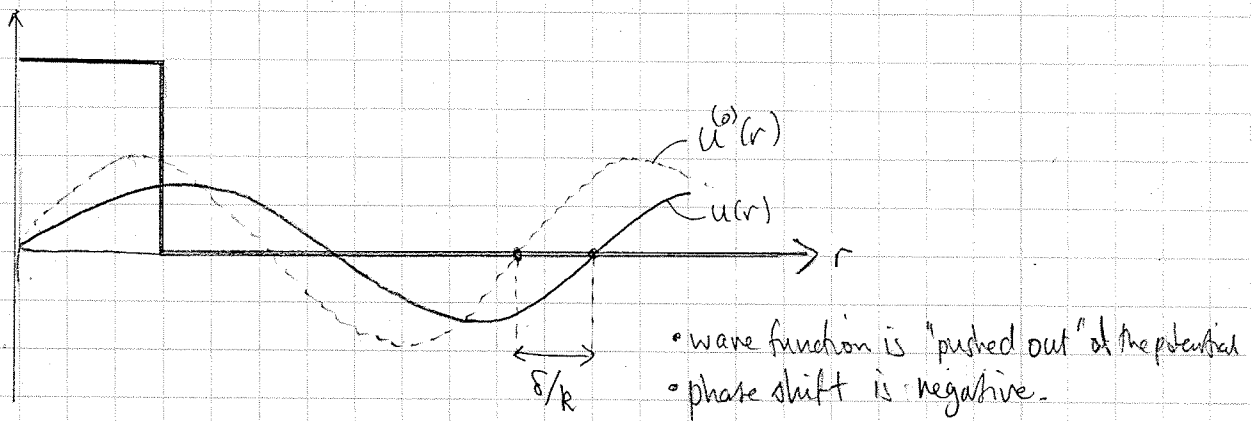 u⁽⁰⁾(r)
u(r)
r
• wave function is "pushed out" of the potential
δ/k
• phase shift is negative.